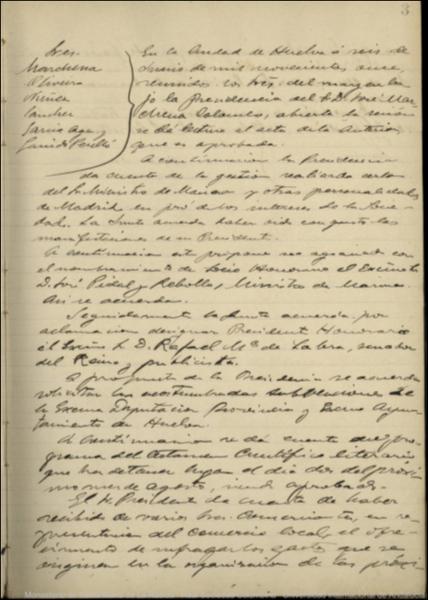 3
Sres.
Marchena
Oliveira
Muñoz
Sanchez
Garcia
En la Ciudad de Huelva á seis de
Junio de mil novecientos once,
reunidos los Sres. del margen ba-
jo la Presidencia del Sr. D. José Mar-
chena Colombo, abierta la sesión
se dá lectura al acta de la anterior
que es aprobada.
A continuación la Presidencia
da cuenta de la gestión realizada cerca
del Sr. Ministro de Marina y otras personalidades
de Madrid en pró de los intereses de la Socie-
dad. La Junta acuerda haber oido con gusto las
manifestaciones de su President.
A continuación este propone sea agraciado con
el nombramiento de Socio Honorario el Excmo
D. José Pidal y Rebollo, Ministro de Marina.
Asi se acuerda.
Seguidamente la Junta acuerda por
aclamación designar President Honorario
el D. Rafael Mª de Labra, senador
del Reino y publicista.
A propuesta de la Presidencia se acuerda
solicitar las acostumbradas subvenciones de
la Excma Diputación Provincial y Excmo Ayun-
tamiento de Huelva.
A continuación se dá cuenta del pro-
grama del Certamen Científico literario
que ha de tener lugar el dia dos del próxi-
mo mes de Agosto, siendo aprobado.
El Sr President da cuenta de haber
recibido de varios Sres. Comerciantes, en re-
presentación del Comercio local, el ofre-
cimiento de sufragar los gastos que se
originen en la organización de las próxi-